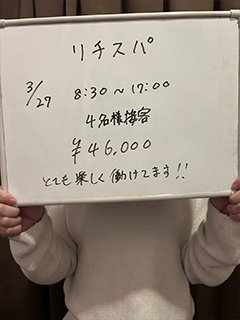 リチスパ
3/27 8:30～17:00
4名様接客
¥46,000
とても楽しく働けてます!!